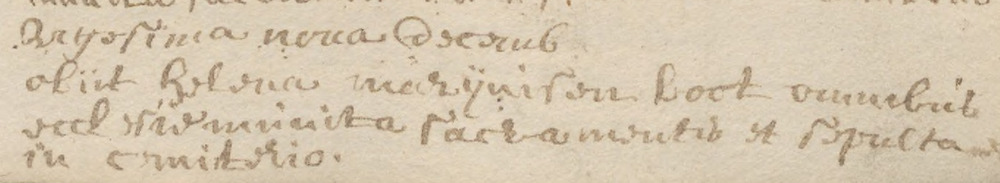 Vigesima nova Decemb
obiit Helena marijnissen koot omnibus
ecclesie munita sacramentis et sepulta
in cemiterio.